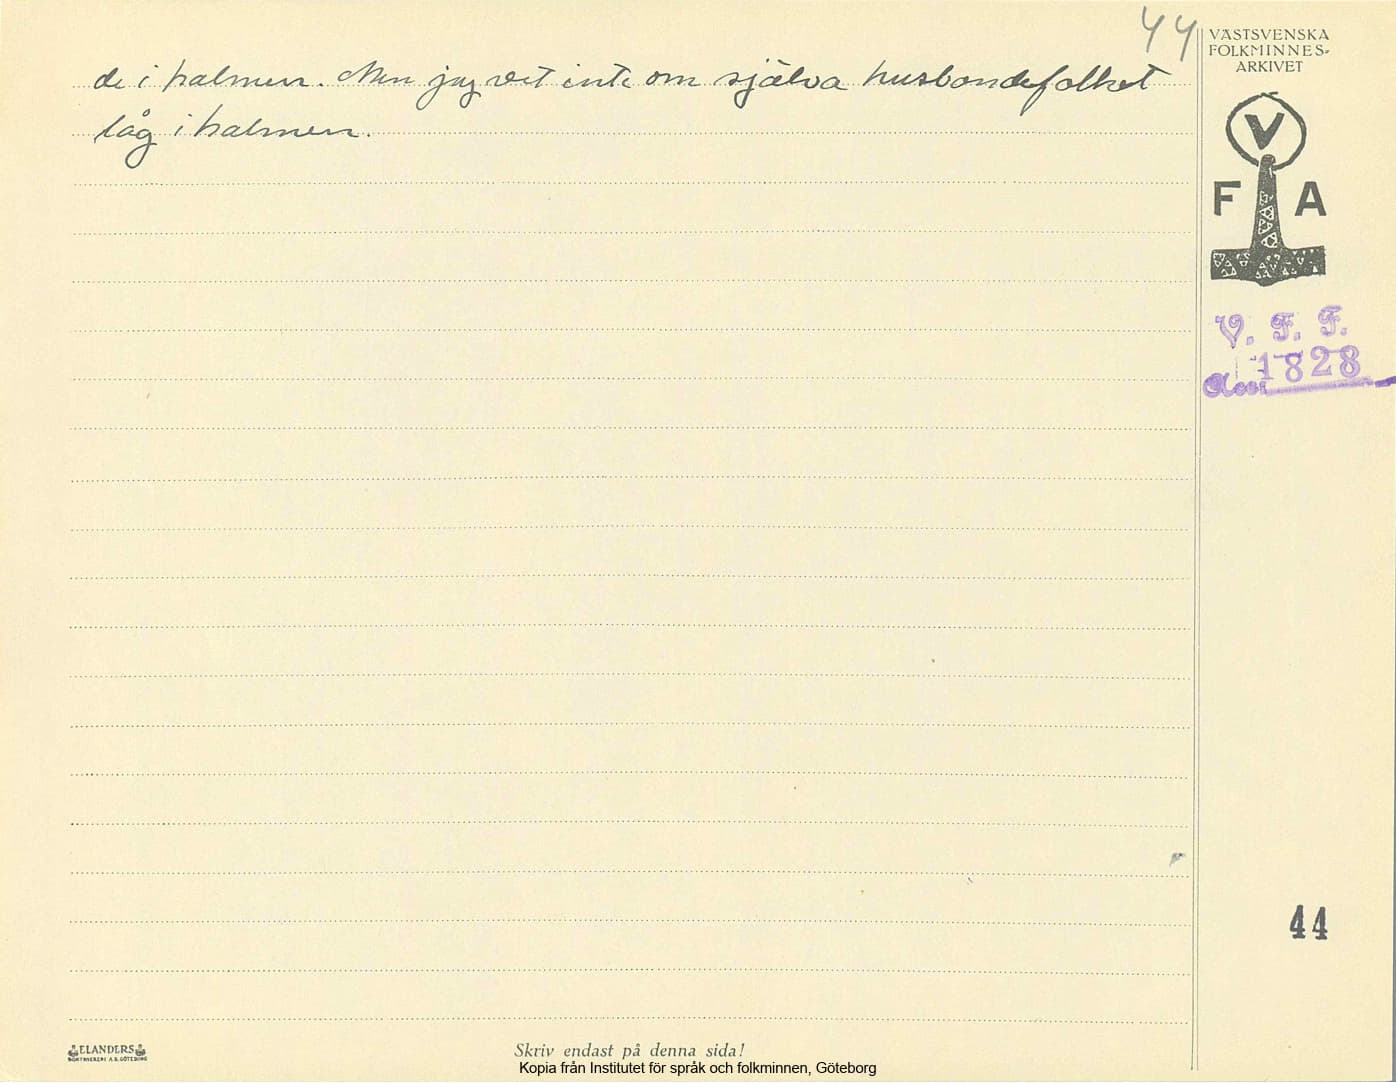 44
VÄSTSVENSKA
FOLKMINNES-
ARKIVET
de i halmen. Men jag vet inte om själva husbondefolket
låg i halmen.
V
F A
V. F. F.
Acc. 1828
44
ELANDERS
BOKTRYCKERI A.B. GÖTEBORG
Skriv endast på denna sida!
Kopia från Institutet för språk och folkminnen, Göteborg